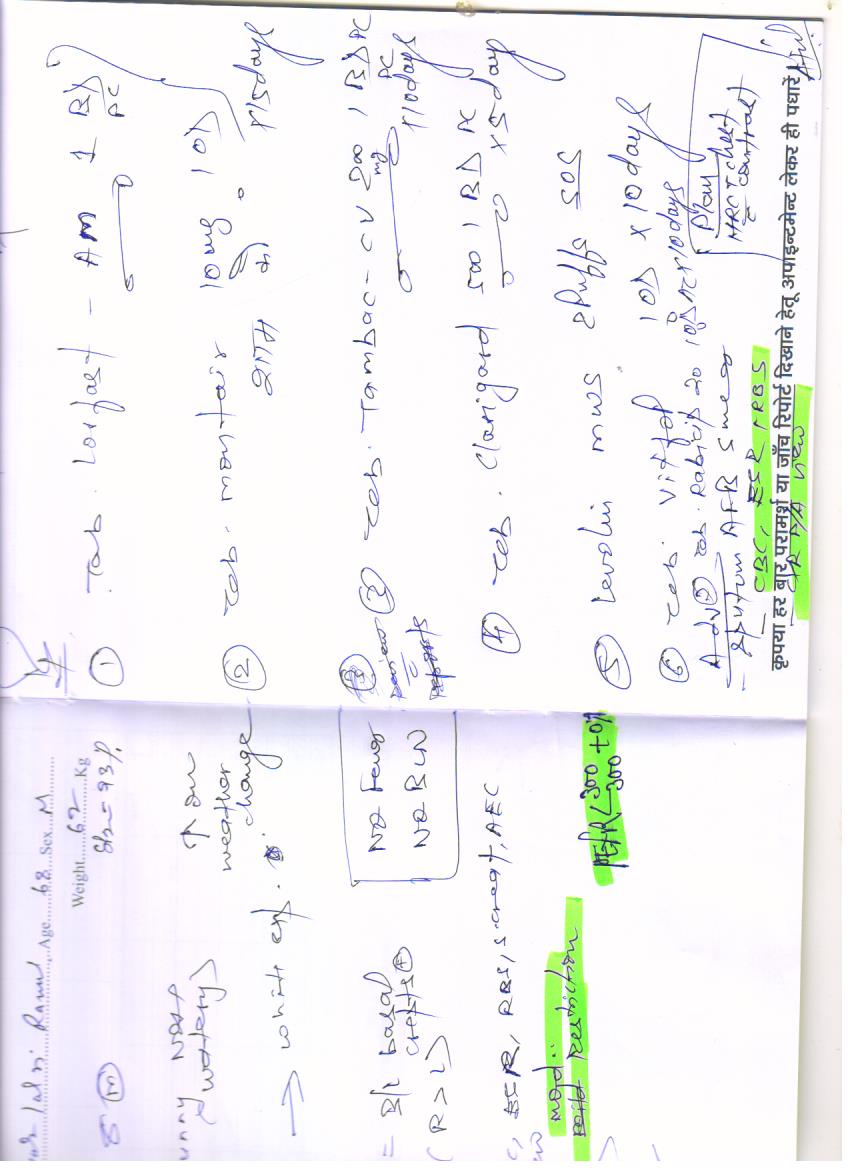 Age 68 Sex M
Weight 62 Kg
93%
nose
watery
↑ on
weather
change
→ white exp.
No Fever
= B/L basal
crepts +
(R > L)
ESR, RBS, S. creat, AEC
mod :
mild restriction
PEFR < 300 + 0%
300
① Tab. Lorfast - AM 1 BD
PC
② Tab. montair 10 mg 1 OD
शाम को
x 15 days
Review c̄ reports
③ Tab. Tambac - CV 200 mg 1 BD PC
x 10 days
④ Tab. Clarigard 500 1 BD PC
x 5 day
⑤ Levolin 2 Puffs SOS
⑥ Tab. Vitfol 1 OD x 10 days
⑦ Tab. Rabicip 20 1 OD AC x 10 days
Adv
- Sputum AFB Smear
CBC, ESR, RBS
Plan
HRCT chest
c̄ contrast
कृपया हर बार परामर्श या जाँच रिपोर्ट दिखाने हेतू अपाइन्टमेन्ट लेकर ही पधारें
CXR P/A view